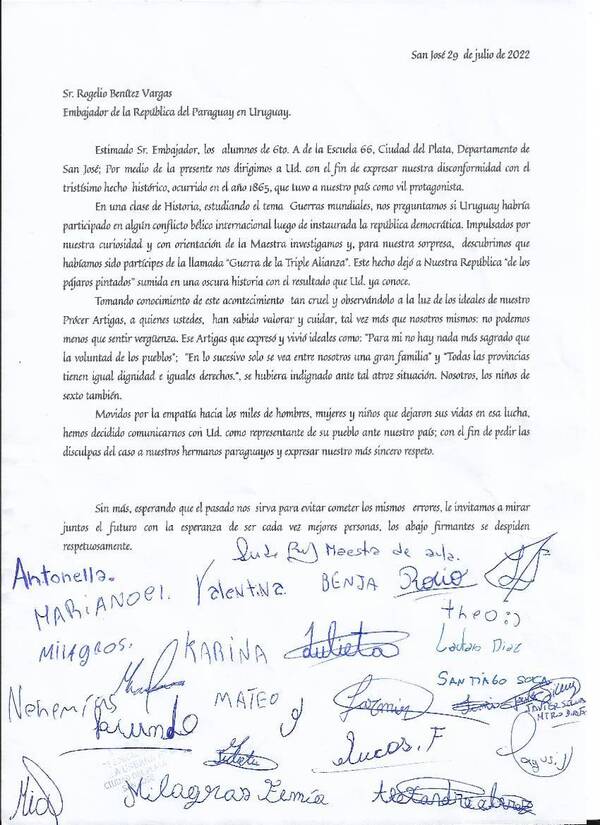 San José 29 de julio de 2022
Sr. Rogelio Benítez Vargas
Embajador de la República del Paraguay en Uruguay.
Estimado Sr. Embajador, los alumnos de 6to. A de la Escuela 66, Ciudad del Plata, Departamento de
San José; Por medio de la presente nos dirigimos a Ud. con el fin de expresar nuestra disconformidad con el
tristísimo hecho histórico, ocurrido en el año 1865, que tuvo a nuestro país como vil protagonista.
En una clase de Historia, estudiando el tema Guerras mundiales, nos preguntamos si Uruguay habría
participado en algún conflicto bélico internacional luego de instaurada la república democrática. Impulsados por
nuestra curiosidad y con orientación de la Maestra investigamos y, para nuestra sorpresa, descubrimos que
habíamos sido partícipes de la llamada “Guerra de la Triple Alianza”. Este hecho dejó a Nuestra República “de los
pájaros pintados” sumida en una oscura historia con el resultado que Ud. ya conoce.
Tomando conocimiento de este acontecimiento tan cruel y observándolo a la luz de los ideales de nuestro
Prócer Artigas, a quienes ustedes, han sabido valorar y cuidar, tal vez más que nosotros mismos: no podemos
menos que sentir vergüenza. Ese Artigas que expresó y vivió ideales como: “Para mi no hay nada más sagrado que
la voluntad de los pueblos”; “En lo sucesivo solo se vea entre nosotros una gran familia” y “Todas las provincias
tienen igual dignidad e iguales derechos.“, se hubiera indignado ante tal atroz situación. Nosotros, los niños de
sexto también.
Movidos por la empatía hacia los miles de hombres, mujeres y niños que dejaron sus vidas en esa lucha,
hemos decidido comunicarnos con Ud. como representante de su pueblo ante nuestro país; con el fin de pedir las
disculpas del caso a nuestros hermanos paraguayos y expresar nuestro más sincero respeto.
Sin más, esperando que el pasado nos sirva para evitar cometer los mismos errores, le invitamos a mirar
juntos el futuro con la esperanza de ser cada vez mejores personas, los abajo firmantes se despiden
respetuosamente.
Maestra de aula.
Antonella. Valentina. BENJA Rocio
MARIANOEL. theo :)
MILAGROS. KARINA Julieta Lautaro Diaz
SANTIAGO SOCA
Nehemías MATEO
facundo Lucas. F
Julieta
Mia Milagros Zemia